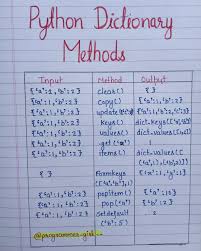 Python Dictionary
Methods
Input Method Output
{'a':1,'b':2} clear() { }
{'a':1,'b':2} copy() {'a':1,'b':2}
{'a':1,'b':2} update() {'a':1,'b':2}
{'a':1,'b':2} keys() dict.keys(['a','b'])
{'a':1,'b':2} values() dict.values([1,2])
{'a':1,'b':2} get('a') 1
{'a':1,'b':2} items()
fromkeys
{'a':1,'b':2} popitem()
{'a':1,'b':2} pop('a')
{'a':1,'b':2} setdefault 2
('b':5)
@programmer_girl_